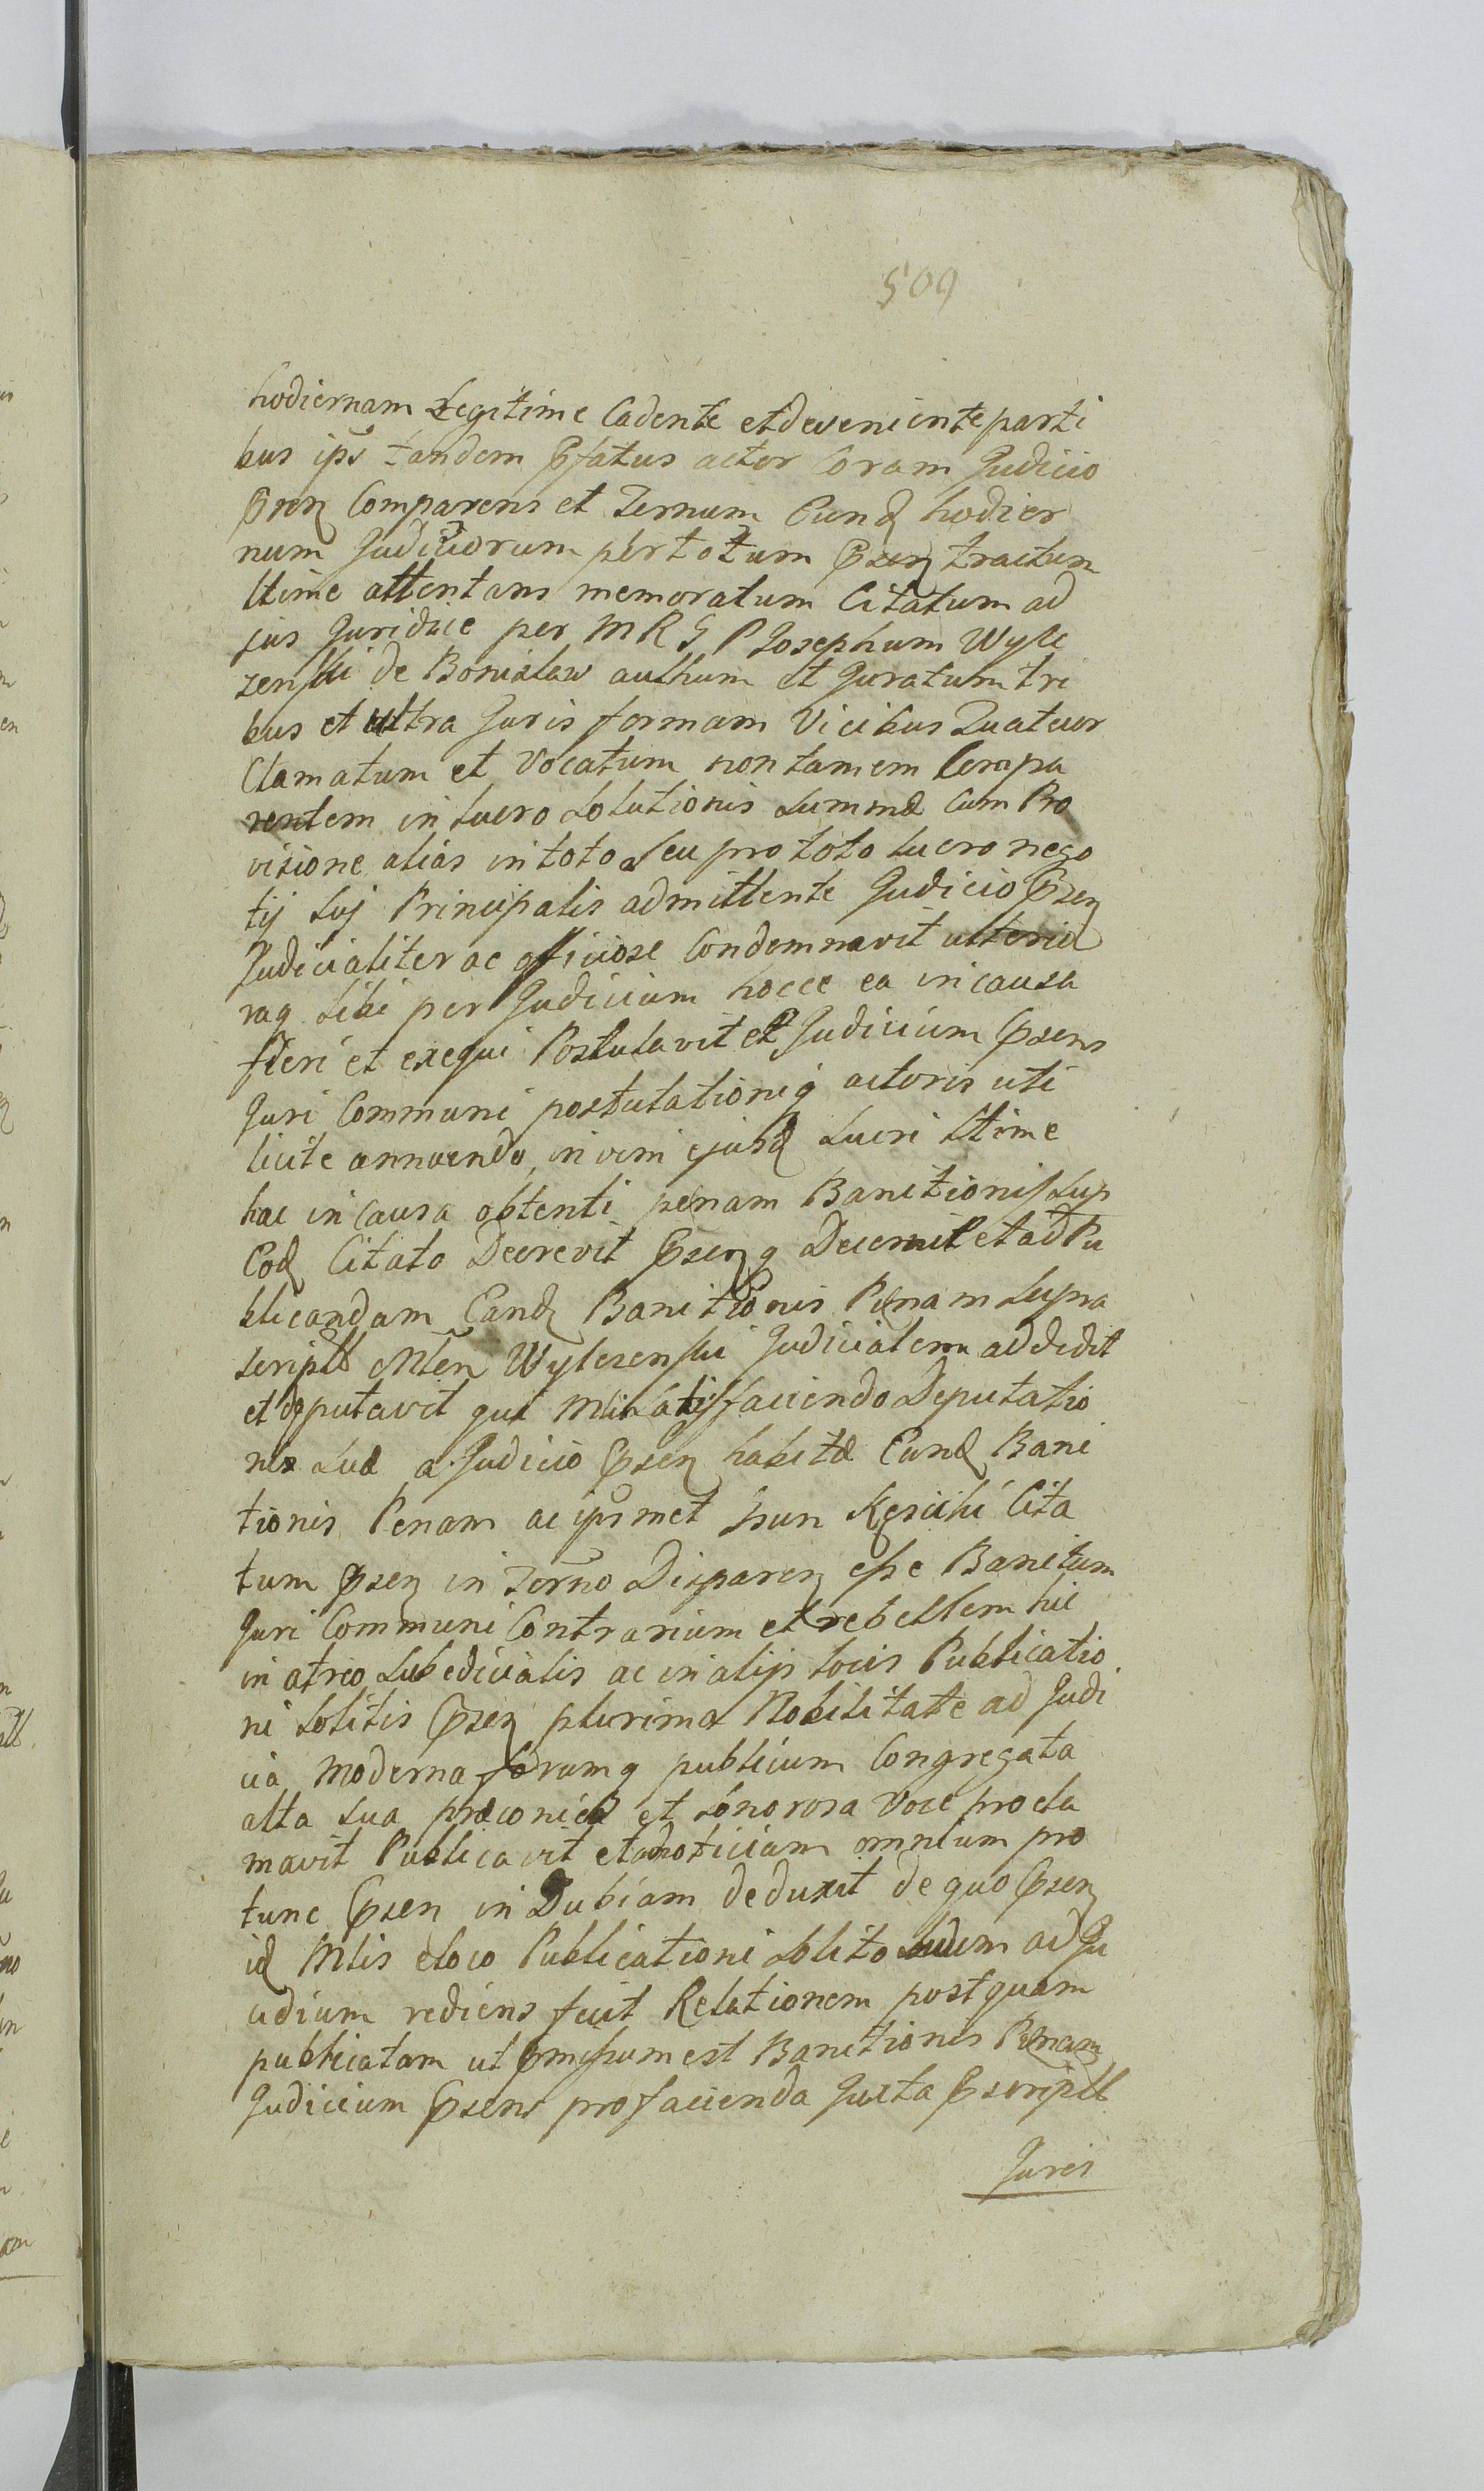 509
hodiernam Legitime Cadente et deveniente parti
bus ips tandem Pfatus actor Coram Judicio
Pnn Comparens et Ternum Eund hodier
num Judiciorum per totum Psen tractum
Ltime attentans memoratum Citatum ad
jus Juridice per M R G P Josephum Wylc
zenski de Bonislaw authum et Juratum tri
bus et ultra Juris formam Vicibus Quatuor
Clamatum et Vocatum non tamem Compa
rentem in Lucro Solutionis Summæ Cum Pro
visione alias in toto seu pro toto lucro nego
tij Suj Principalis admittente Judicio Psen
Judicialiter ac officiose Condemnavit ulterio
raq Sibi per Judicium hocce ea in causa
fieri et exequi Postulavit et Judicium Psens
Juri Communi postulationiq actoris uti
licite annuendo, in vim ejusd Lucri Ltime
hac in Causa obtenti penam Banitionis Sup
Eod Citato Decrevit Psenq Decernit et ad Pu
blicandam Eand Banitionis Penam supra
scriptt Mlen Wylczenski Judicialem addidit
et deputavit qui Mlis satisfaciendo Deputatio
nis Suæ a Judicio Psen habitæ Eand Bani
tionis Penam ac ipsmet Gsun Kęsicki Cita
tum Psen in Terno Disparen esse Banitum
Juri Communi Contrarium et rebellem hic
in atrio Subsedicialis ac in alijs locis Publicatio
ni Solitis Psen plurima Nobilitate ad Judi
cia moderna forumq publicum Congregata
alta sua præconica et Sonorosa Voce procla
mavit Publicavit et ad noticiam omnium pro
tunc Psen in Dubiam deduxit de quo Psen
id Mlis e loco Publicationi Solito ad Ju
dicium rediens fecit Relationem postquam
publicatam ut Pmissum est Banitionis Penam
Judicium Psens pro facienda Juxta Pscriptt
Juris